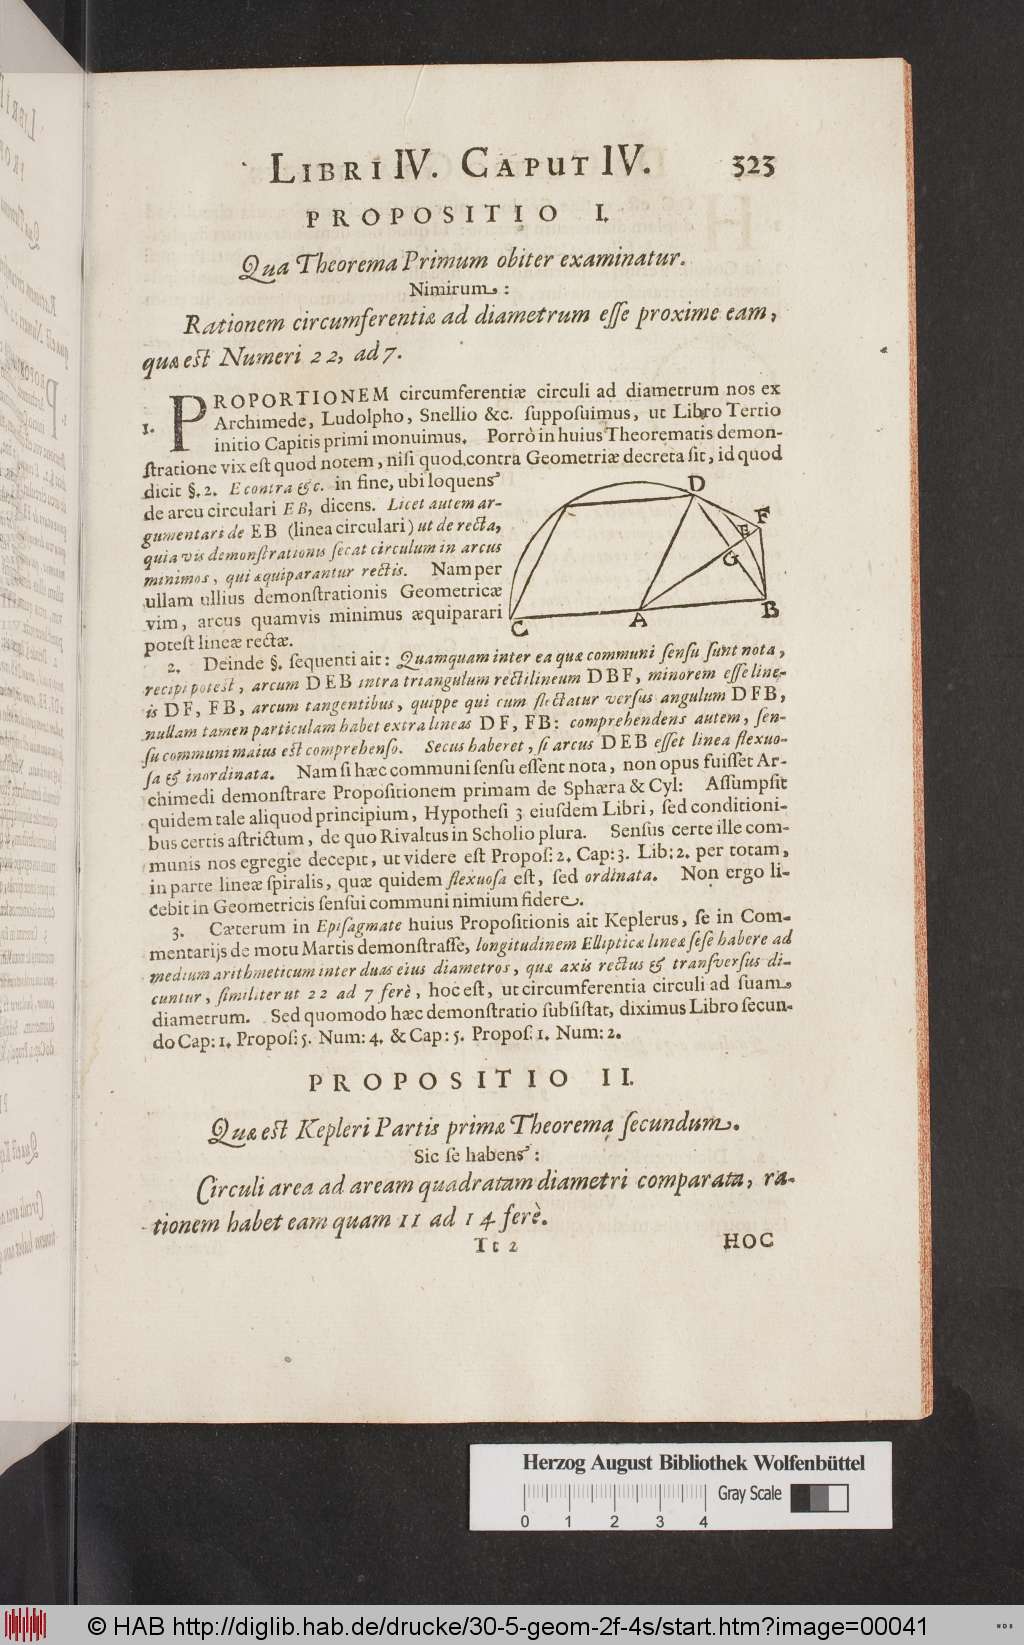 LIBRI IV. CAPUT IV. 323
PROPOSITIO I.
Qua Theorema Primum obiter examinatur.
Nimirum:
Rationem circumferentiæ ad diametrum esse proxime eam,
quæ est Numeri 22, ad 7.
1. PROPORTIONEM circumferentiæ circuli ad diametrum nos ex
Archimede, Ludolpho, Snellio &c. supposuimus, ut Libro Tertio
initio Capitis primi monuimus. Porrò in huius Theorematis demon-
stratione vix est quod notem, nisi quod contra Geometriæ decreta sit, id quod
dicit §. 2. E contra &c. in fine, ubi loquens
de arcu circulari EB, dicens. Licet autem ar-
gumentari de EB (linea circulari) ut de recta,
quia vis demonstrationis secat circulum in arcus
minimos, qui æquiparantur rectis. Nam per
ullam ullius demonstrationis Geometricæ
vim, arcus quamvis minimus æquiparari
potest lineæ rectæ.
D
F
E
G
C
A
B
2. Deinde §. sequenti ait: Quamquam inter ea quæ communi sensu sunt nota,
recipi potest, arcum DEB intra triangulum rectilineum DBF, minorem esse line-
is DF, FB, arcum tangentibus, quippe qui cum flectatur versus angulum DFB,
nullam tamen particulam habet extra lineas DF, FB: comprehendens autem, sen-
su communi maius est comprehenso. Secus haberet, si arcus DEB esset linea flexuo-
sa & inordinata. Nam si hæc communi sensu essent nota, non opus fuisset Ar-
chimedi demonstrare Propositionem primam de Sphæra & Cyl: Assumpsit
quidem tale aliquod principium, Hypothesi 3 eiusdem Libri, sed conditioni-
bus certis astrictum, de quo Rivaltus in Scholio plura. Sensus certe ille com-
munis nos egregie decepit, ut videre est Propos: 2. Cap: 3. Lib: 2. per totam,
in parte lineæ spiralis, quæ quidem flexuosa est, sed ordinata. Non ergo li-
cebit in Geometricis sensui communi nimium fidere.
3. Cæterum in Episagmate huius Propositionis ait Keplerus, se in Com-
mentarijs de motu Martis demonstrasse, longitudinem Ellipticæ lineæ sese habere ad
medium arithmeticum inter duas eius diametros, quæ axis rectus & transversus di-
cuntur, similiter ut 22 ad 7 ferè, hoc est, ut circumferentia circuli ad suam
diametrum. Sed quomodo hæc demonstratio subsistat, diximus Libro secun-
do Cap: 1. Propos: 5. Num: 4. & Cap: 5. Propos: 1. Num: 2.
PROPOSITIO II.
Quæ est Kepleri Partis primæ Theorema secundum.
Sic se habens:
Circuli area ad aream quadratam diametri comparata, ra-
tionem habet eam quam 11 ad 14 ferè.
Tt 2 HOC
Herzog August Bibliothek Wolfenbüttel
Gray Scale
0 1 2 3 4
© HAB http://diglib.hab.de/drucke/30-5-geom-2f-4s/start.htm?image=00041